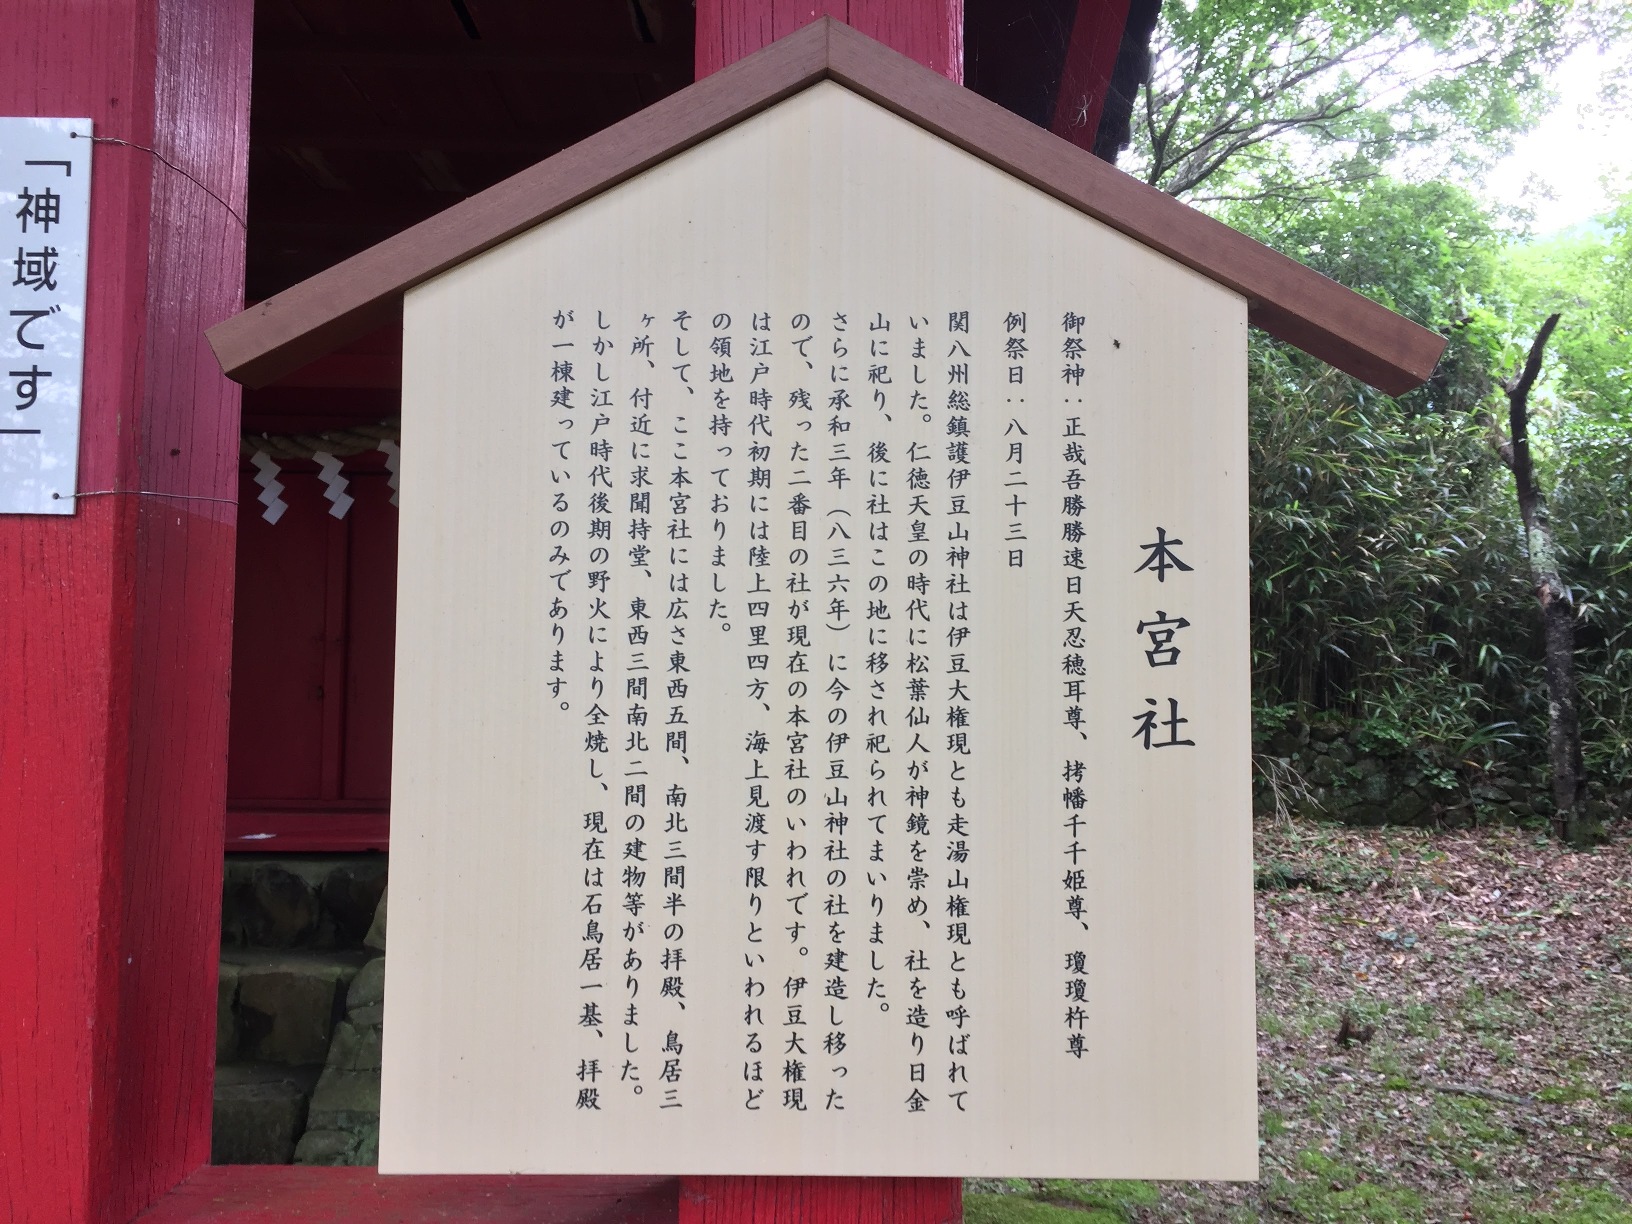 本宮社
御祭神：正哉吾勝勝速日天忍穂耳尊、拷幡千千姫尊、瓊瓊杵尊
例祭日：八月二十三日
関八州総鎮護伊豆山神社は伊豆大権現とも走湯山権現とも呼ばれて
いました。仁徳天皇の時代に松葉仙人が神鏡を崇め、社を造り日金
山に祀り、後に社はこの地に移され祀られてまいりました。
さらに承和三年（八三六年）に今の伊豆山神社の社を建造し移った
ので、残った二番目の社が現在の本宮社のいわれです。伊豆大権現
は江戸時代初期には陸上四里四方、海上見渡す限りといわれるほど
の領地を持っておりました。
そして、ここ本宮社には広さ東西五間、南北三間半の拝殿、鳥居三
ヶ所、付近に求聞持堂、東西三間南北二間の建物等がありました。
しかし江戸時代後期の野火により全焼し、現在は石鳥居一基、拝殿
が一棟建っているのみであります。
「神域です」